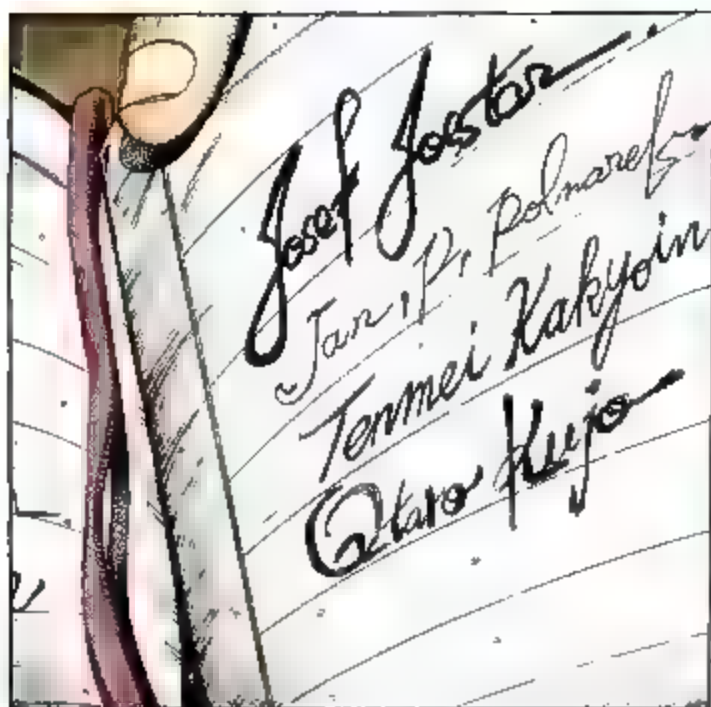 Josef Joestar
Jan, P, Polnareff
Tenmei Kakyoin
Qtaro Kujo